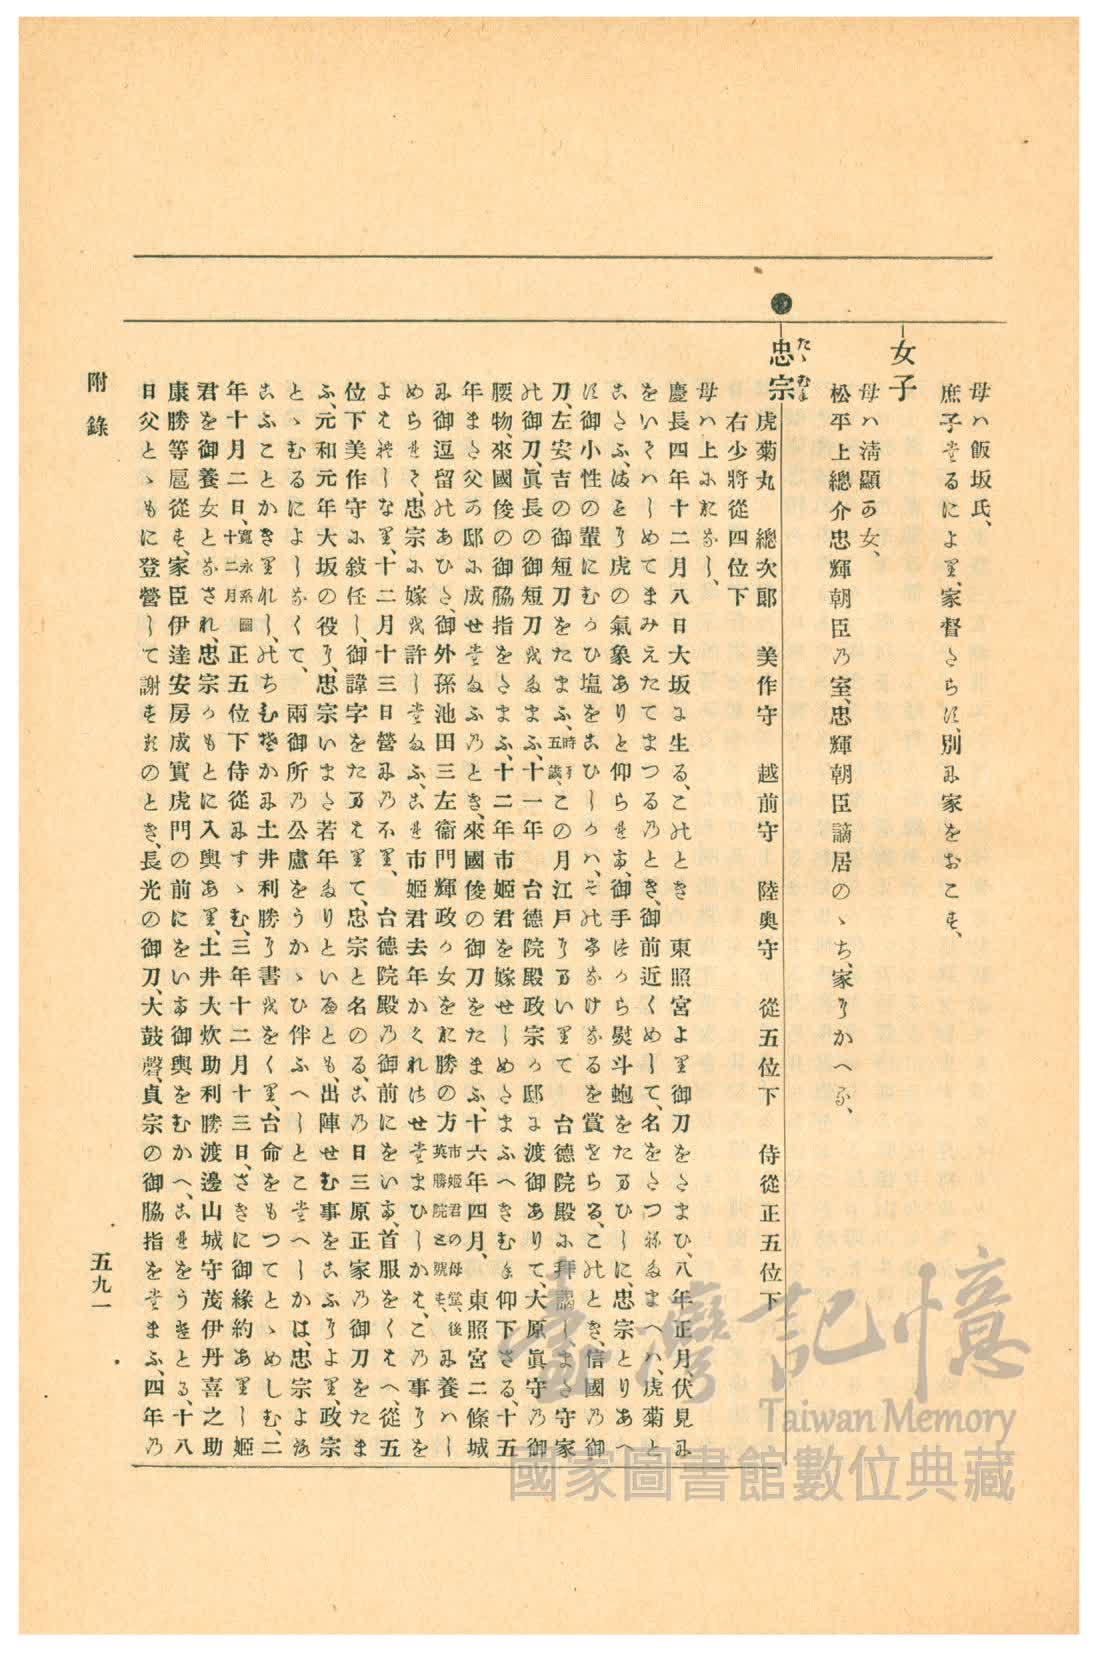 母ハ飯坂氏、
庶子たるによりて、家督たらす、別に家をおこす、
女子
母ハ淸顯の女、
松平上總介忠輝朝臣乃室、忠輝朝臣謫居のゝち、家にかへる、
忠宗
たゝむね
虎菊丸　總次郎　美作守　越前守　陸奥守　從五位下　侍從正五位下
右少將從四位下
母ハ上におなし、
慶長四年十二月八日大坂に生る、このとき　東照宮より御刀をたまひ、八年正月、伏見に
をいてハしめてまみえたてまつる乃とき、御前近くめして、名をたつねたまへハ、虎菊と
こたふ、はたして虎の氣象ありと仰られ、御手つから熨斗蚫をたまひしに、忠宗とりあへ
す御小性の輩にむかひ塩をこひしかハ、そのおさなけなるを賞せらる、このとき、信國乃御
刀、左安吉の御短刀をたまふ、時に五歳、この月江戸にまいりて　台德院殿に拜謁し、また守家
の御刀、眞長の御短刀をたまふ、十一年　台德院殿政宗か邸に渡御ありて、大原眞守乃御
腰物、來國俊の御脇指をたまふ、十二年市姬君を嫁せしめたまふへきむね仰下さる、十五
年また父の邸に成せたまふ乃とき、來國俊の御刀をたまふ、十六年四月、東照宮二條城
に御逗留のあひた、御外孫池田三左衞門輝政か女をお勝の方市姬君の母堂、後英勝院と號す、に養ハし
めらせて、忠宗に嫁を許したまふ、これ市姬君去年かくれ給せたまひしかは、この事にを
よはせしなり、十二月十三日營にのほり、台德院殿乃御前にをいて、首服をくはへ、從五
位下美作守に敍任し、御諱字をたまはりて、忠宗と名のる、この日三原正家乃御刀をたま
ふ、元和元年大坂の役に、忠宗いまた若年なりといへとも、出陣せむ事をこふによりて、政宗
とゝむるによしなくて、兩御所乃公慮をうかゝひ伴ふへしとこたへしかは、忠宗よろ
こふことかきりなし、のちひそかに土井利勝に書をくり、台命をもつてとゝめしむ、二
年十月二日、寬永系圖十二月正五位下侍從にすゝむ、三年十二月十三日、さきに御緣約ありし姬
君を御養女となされ、忠宗かもとに入輿あり、土井大炊助利勝渡邊山城守茂伊丹喜之助
康勝等扈從す、家臣伊達安房成實虎門の前にをいて御輿をむかへ、これをうけとる、十八
日父とゝもに登營して謝するのとき、長光の御刀、大鼓聲、貞宗の御脇指をたまふ、四年乃
附錄
五九一
臺灣記憶
Taiwan Memory
國家圖書館數位典藏